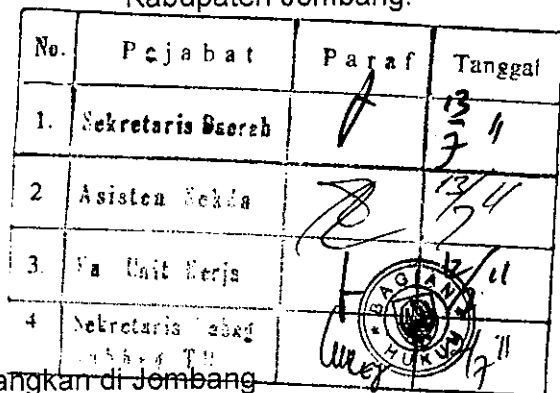 Kabupaten Jombang.
No. Pejabat Paraf Tanggal
1. Sekretaris Daerah 13/7 11
2 Asisten Sekda 13/7 11
3. Ka Unit Kerja 12/ 11
BAGIAN HUKUM
4 Sekretaris /7 11
angkan di Jombang